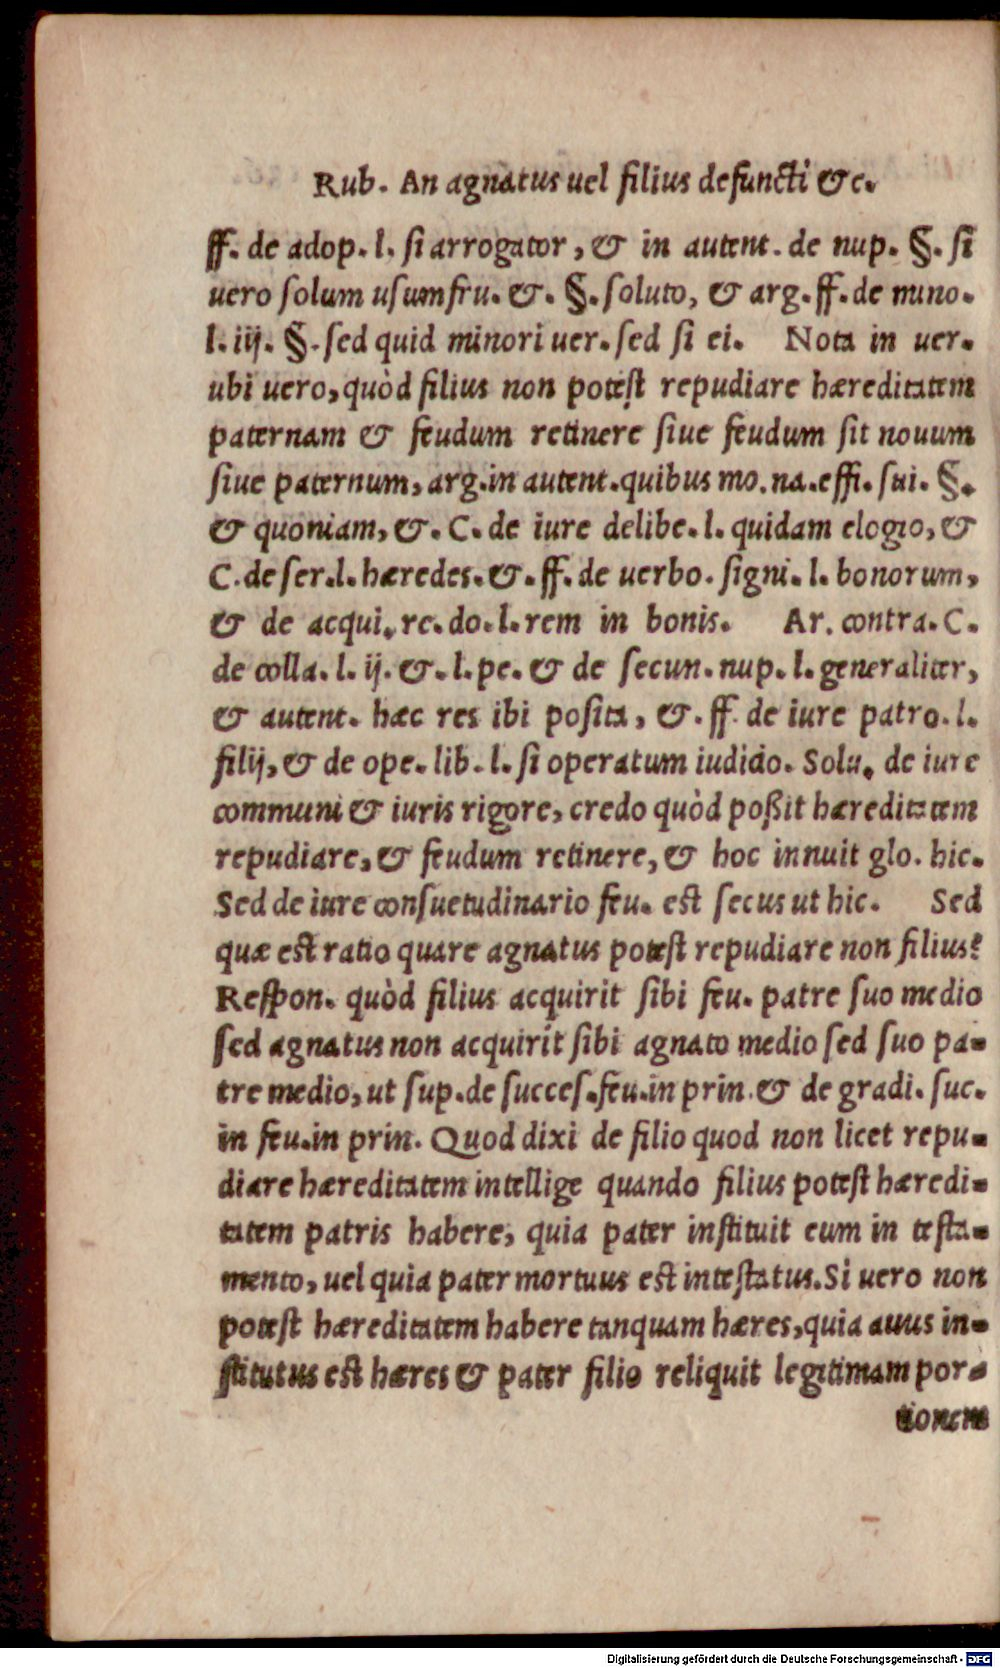 Rub. An agnatus uel filius defuncti &c.
ff. de adop. l. si arrogator, & in autent. de nup. §. si
uero solum usumfru. &. §. soluto, & arg. ff. de mino.
l. iij. §. sed quid minori uer. sed si ei. Nota in uer.
ubi uero, quòd filius non potest repudiare hæreditatem
paternam & feudum retinere siue feudum sit nouum
siue paternum, arg. in autent. quibus mo. na. effi. sui. §.
& quoniam, &. C. de iure delibe. l. quidam elogio, &
C. de ser. l. hæredes. &. ff. de uerbo. signi. l. bonorum,
& de acqui. re. do. l. rem in bonis. Ar. contra. C.
de colla. l. ij. &. l. pe. & de secun. nup. l. generaliter,
& autent. hæc res ibi posita, &. ff. de iure patro. l.
filij, & de ope. lib. l. si operatum iudicio. Solu. de iure
communi & iuris rigore, credo quòd poßit hæreditatem
repudiare, & feudum retinere, & hoc innuit glo. hic.
Sed de iure consuetudinario feu. est secus ut hic. Sed
quæ est ratio quare agnatus potest repudiare non filius?
Respon. quòd filius acquirit sibi feu. patre suo medio
sed agnatus non acquirit sibi agnato medio sed suo pa-
tre medio, ut sup. de succes. feu. in prin. & de gradi. suc.
in feu. in prin. Quod dixi de filio quod non licet repu-
diare hæreditatem intellige quando filius potest hæredi-
tatem patris habere, quia pater instituit eum in testa-
mento, uel quia pater mortuus est intestatus. Si uero non
potest hæreditatem habere tanquam hæres, quia auus in-
stitutus est hæres & pater filio reliquit legitimam por-
tionem
Digitalisierung gefördert durch die Deutsche Forschungsgemeinschaft - DFG